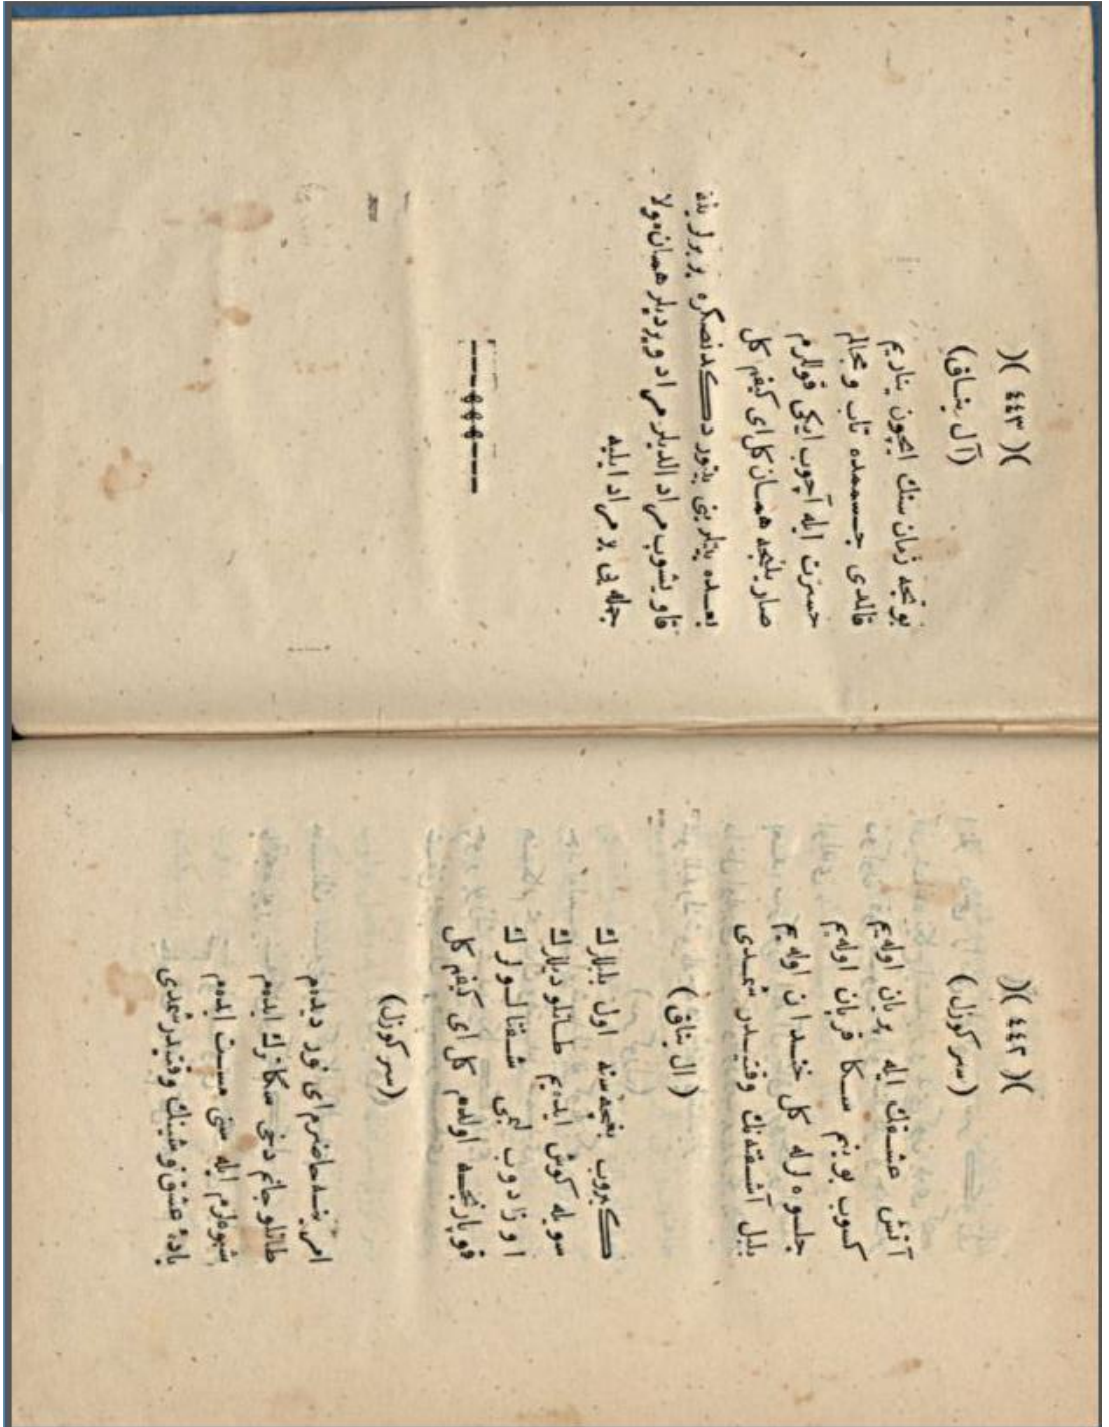 )( ٤٤٢ )(
(سر كوزل)
آتش عشقك ايله بريان اوله يم
كسوب بوينم سكا قربان اوله يم
جلوه لرله كل خندان اوله يم
بلبل آشفته نك وقتيدر شمدى
(ال يناق)
كيروب بغچه سنه اول بلبلرك
سويله كوش ايده يم طاتلو ديلرك
اوزادوب لبى شفتالولرك
قوپارنجه اولدم كل اى كيفم كل
(سر كوزل)
حاضرم اى نور ديدم
طاتلو جانم دخى سكا ترك ايدم
شيوه لرم ايله سنى مست ايدم
بادهٔ عشق نوشينك وقتيدر شمدى
)( ٤٤٣ )(
(آل يناق)
بونجه زمان سنك ايچون يناريم
قالدى جسممده تاب و مجالم
حسرت ايله آچوب ايكى قوللرم
صاريلنجه همان كل اى كيفم كل
بعده بيتلرينى دكدنصكره بربرلرينه
قاويشوب مراد الديلر مراد ويرديلر همان مولا
جمله يى بر مراد ايليه